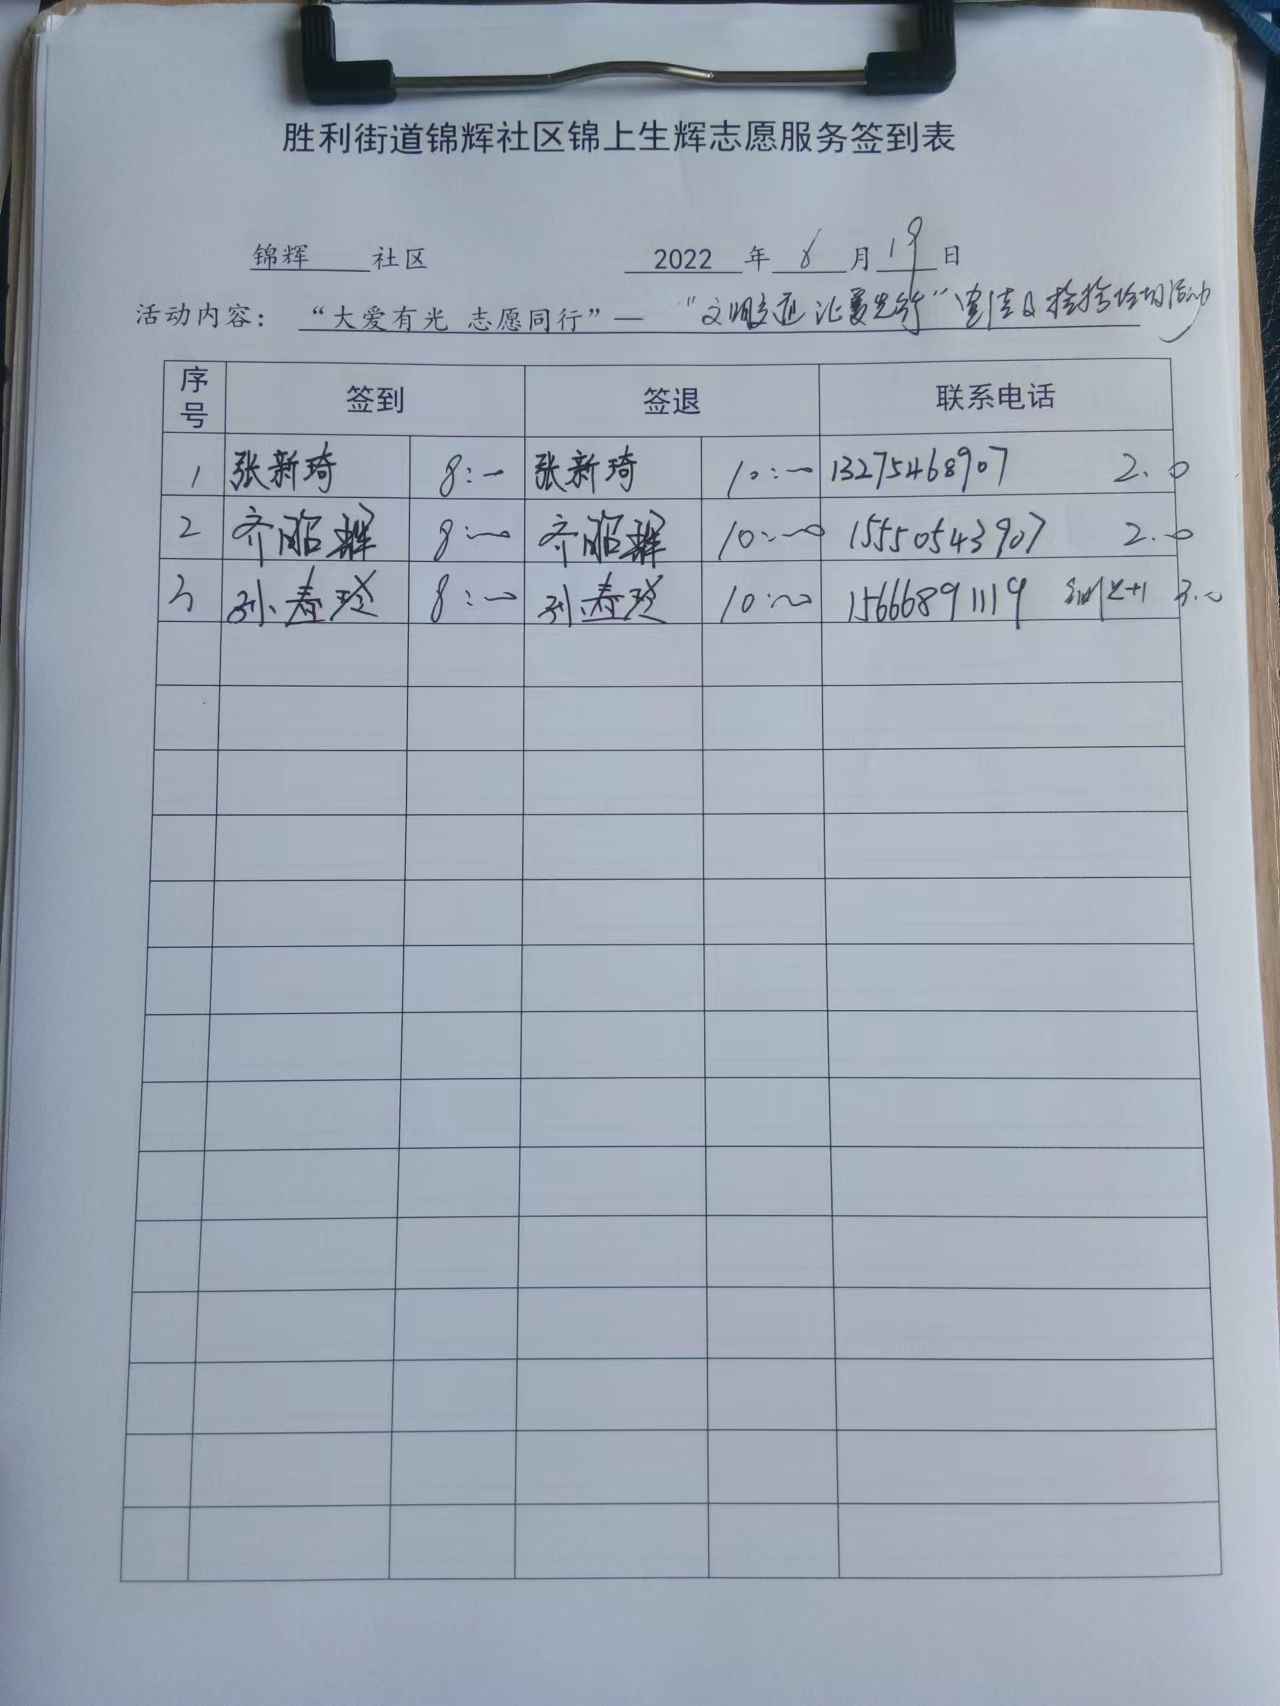 胜利街道锦辉社区锦上生辉志愿服务签到表
锦辉 社区 2022 年 6 月 19 日
活动内容： “大爱有光 志愿同行”— “文明交通 让爱先行” 宣传及捡拾垃圾活动
序号 签到 签退 联系电话
1 张新琦 8:00 张新琦 10:00 13275468907 2.0
2 齐 8:00 齐 10:00 15550543907 2.0
3 孙春玲 8:00 孙春玲 10:00 15666891119 +1 3.0